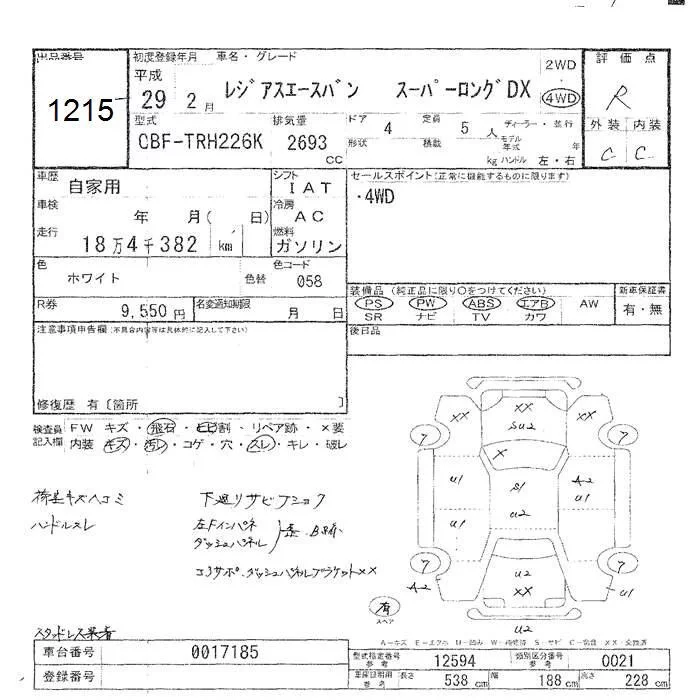 出品番号
1215
初度登録年月 車名・グレード
平成
29 2 月 レジアスエースバン スーパーロングDX
2WD
4WD
評価点
R
外装 内装
C C
型式 排気量 ドア 4 定員 5 人 ディーラー・並行
CBF-TRH226K 2693 CC
形状 積載 kg モデル年式 年
ハンドル 左・右
車歴 自家用
シフト IAT
車検 年 月( 日)
冷房 AC
走行 18万4千382 km
燃料 ガソリン
セールスポイント(正常に機能するものに限ります)
・4WD
色 ホワイト 色替
色コード 058
装備品 (純正品に限り○をつけてください) 新車保証書
PS PW ABS エアB AW 有・無
SR ナビ TV カワ
R券 9,550 円 名変通知期限 月 日
後日品
注意事項申告欄(不具合内容等は具体的に記入して下さい)
修復歴 有〔箇所 〕
検査員記入欄 FW キズ・飛石・ヒビ割・リペア跡・×要
内装 キズ・汚レ・コゲ・穴・スレ・キレ・破レ
荷室キズヘコミ
ハンドルスレ
下廻りサビ
左Fインパネ
ダッシュパネル
コアサポ・ダッシュパネルブラケットXX
スタッドレス装着
XX XX XX
SU2
7 7
X
U1 S1 A2
U1
U1 U2
7 7
A2 U2 XX U1
U2
有
スペア
A-キズ E-エクボ U-凹ミ W-補修跡 S-サビ C-腐食 XX-交換済
車台番号 0017185
登録番号
型式指定番号 参考 12594 類別区分番号 参考 0021
車庫証明用 参考 長さ 538 cm 幅 188 cm 高さ 228 cm